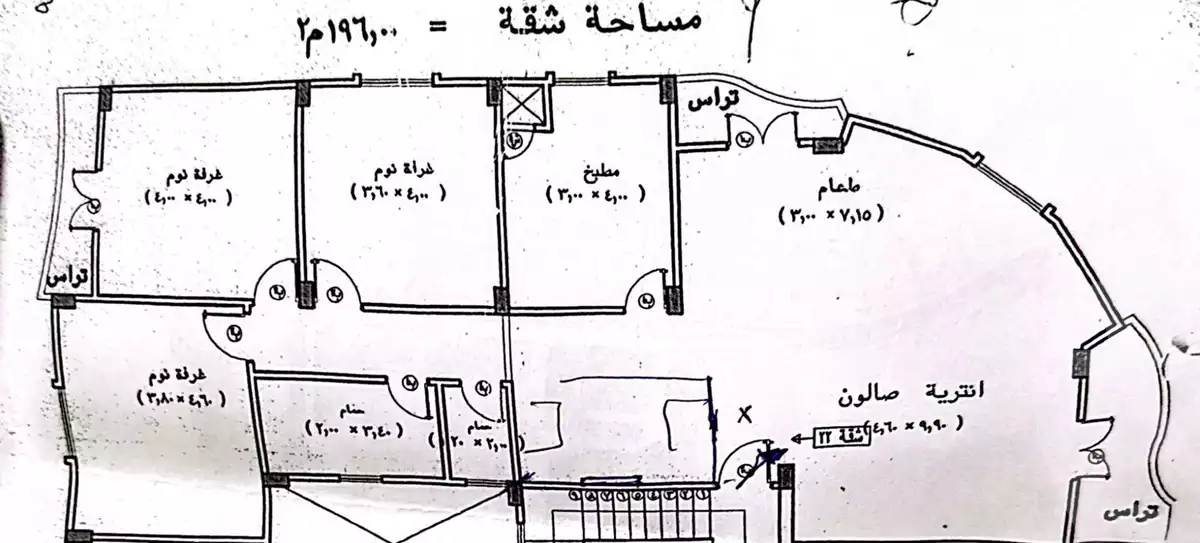 مساحة شقة = ١٩٦,٠٠م٢
تراس
غرفة نوم
(٤,٠٠ × ٤,٠٠)
غرفة نوم
(٣,٦٠ × ٤,٠٠)
مطبخ
(٣,٠٠ × ٤,٠٠)
طعام
(٣,٠٠ × ٧,١٥)
تراس
غرفة نوم
(٣,٨٠ × ٤,٦٠)
حمام
(٢,٠٠ × ٣,٤٠)
حمام
× ٢,٠٠)
X
انترية صالون
(٤,٦٠ × ٩,٩٠)
شقة ٢٢
تراس